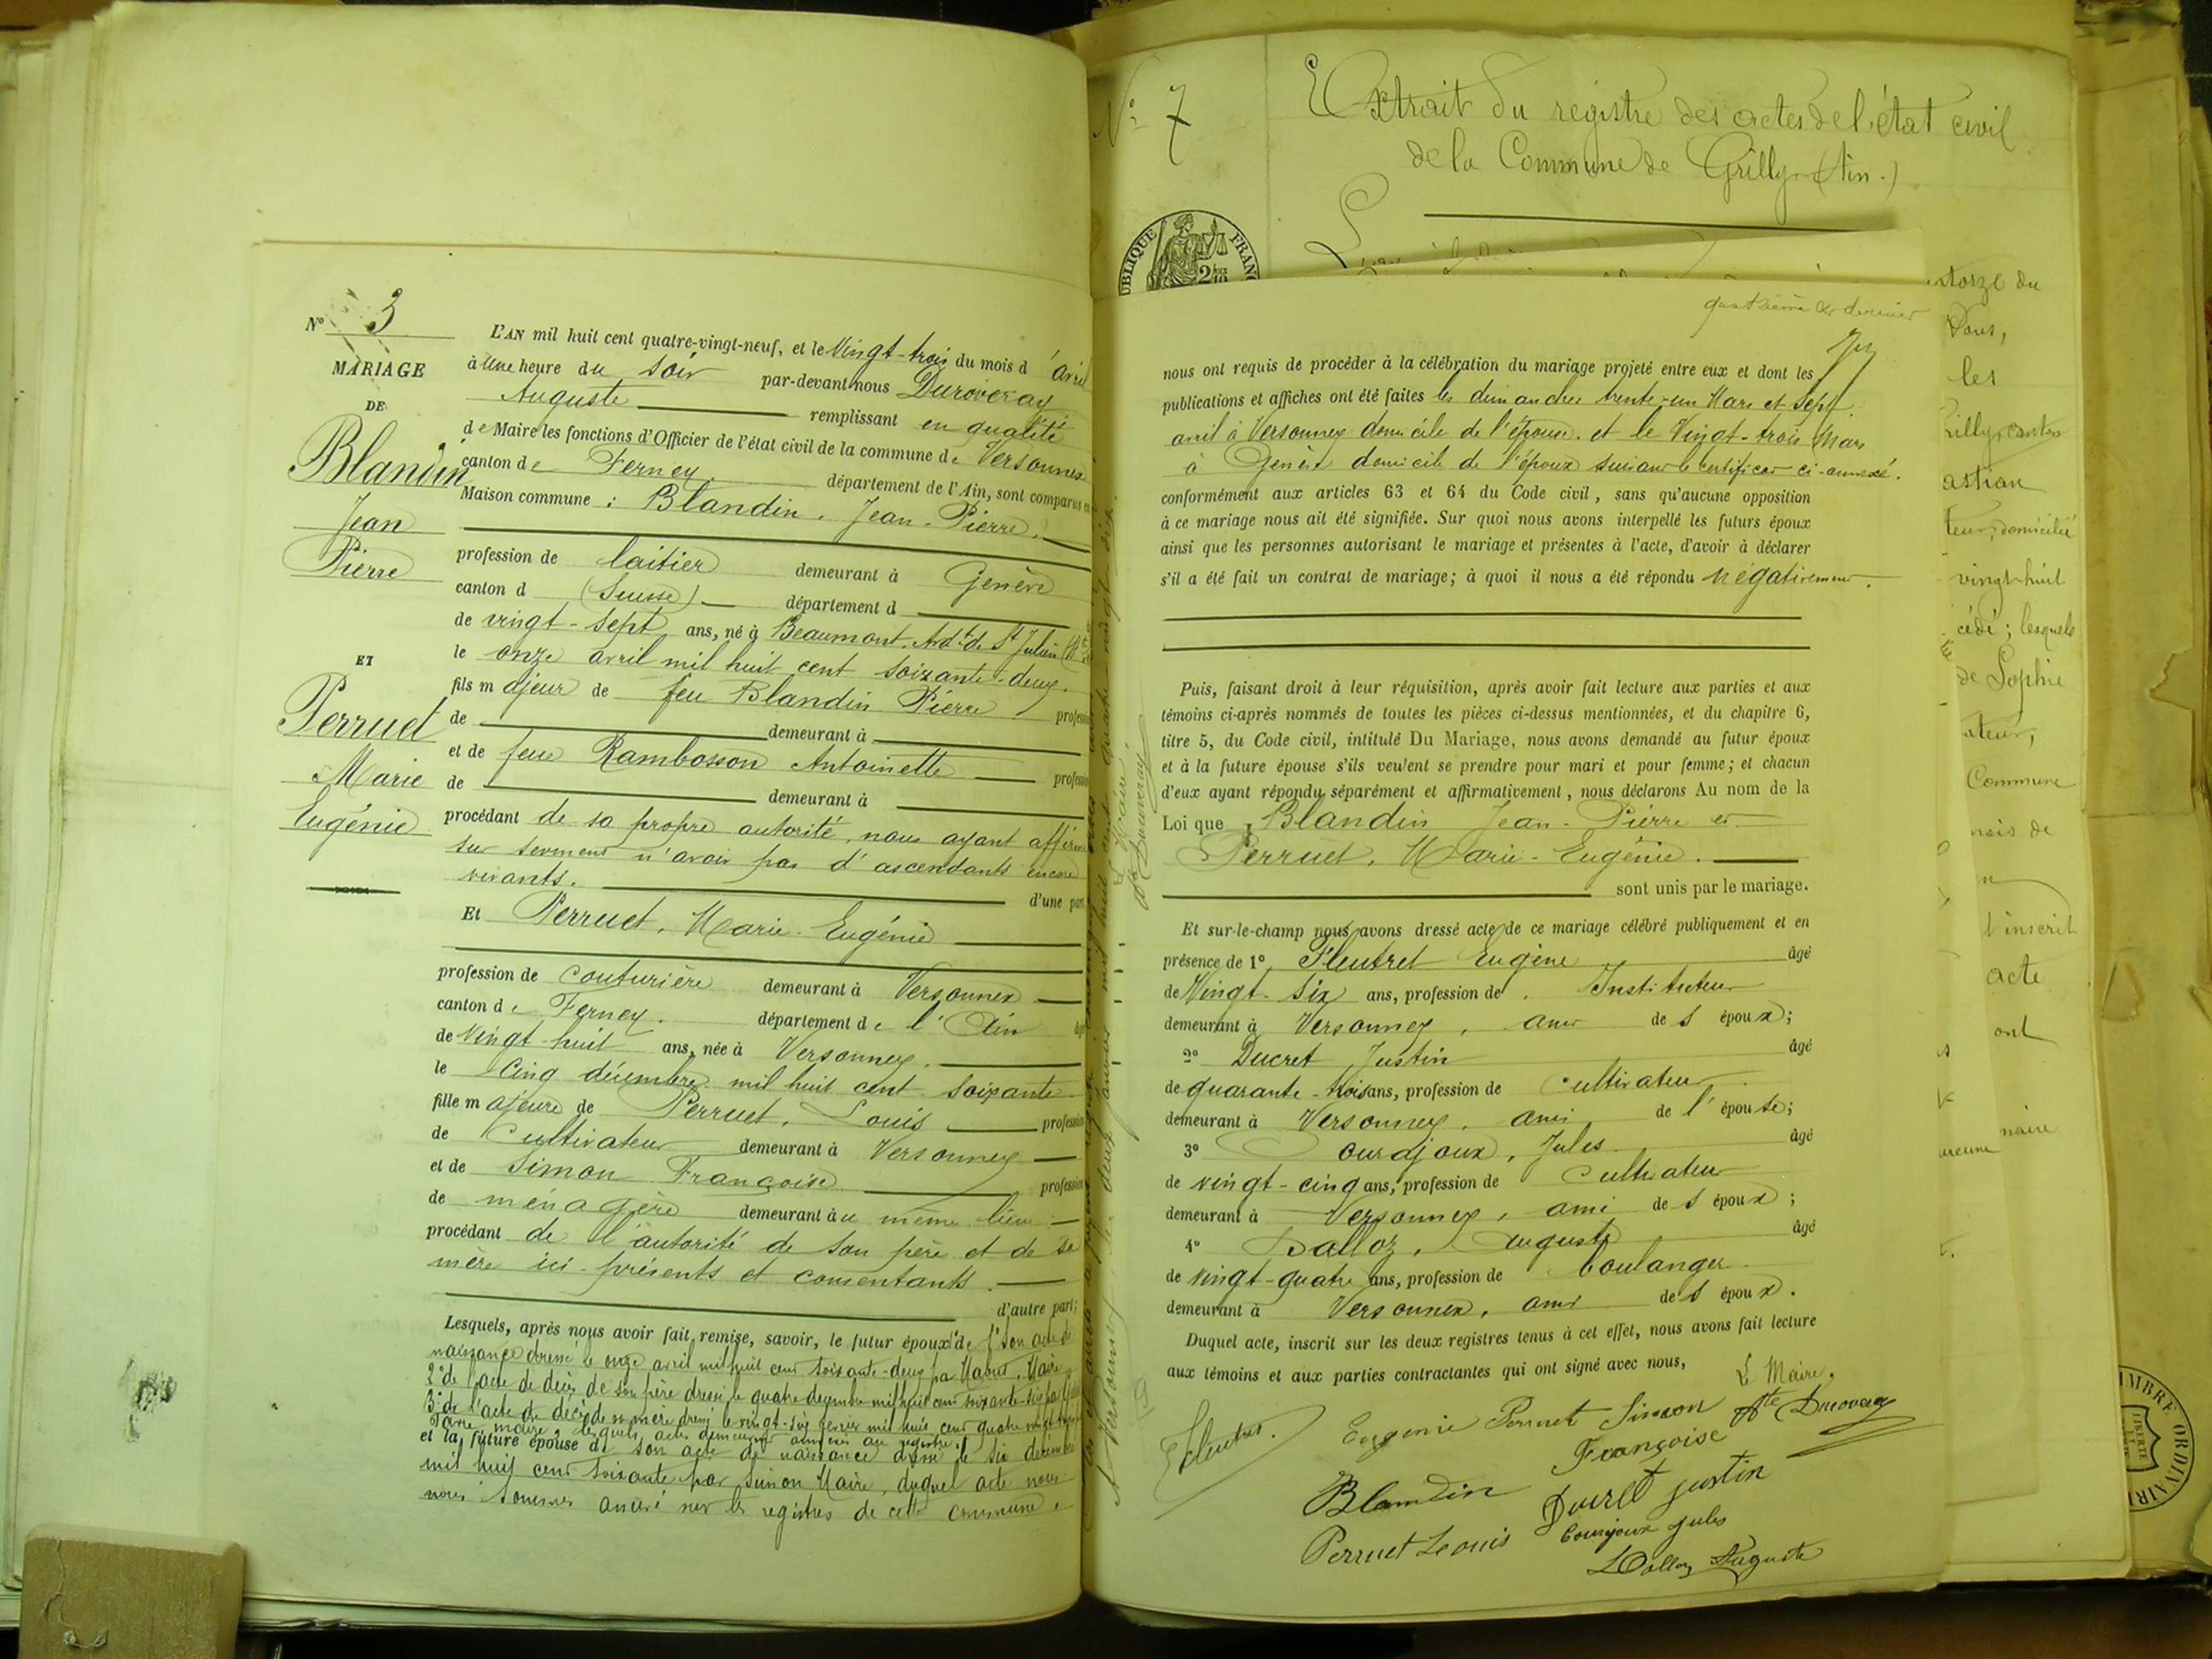 N° 3
MARIAGE
DE
Blandin
Jean
Pierre
ET
Perruet
Marie
Eugénie
L'AN mil huit cent quatre-vingt-neuf, et le Vingt-trois du mois d'avril
à Une heure du soir par-devant nous Duroveray
Auguste remplissant en qualité
de Maire les fonctions d'Officier de l'état civil de la commune de Versonnex
canton de Ferney département de l'Ain, sont comparus en
Maison commune : Blandin, Jean-Pierre,
profession de laitier demeurant à Genève
canton d (Suisse) département d
de vingt-sept ans, né à Beaumont, Ardt de St Julien (Hte
le onze avril mil huit cent soixante-deux.
fils majeur de feu Blandin Pierre profession
de demeurant à
et de feue Rambosson Antoinette profession
de demeurant à
procédant de sa propre autorité, nous ayant affirmé
sur serment n'avoir pas d'ascendants encore
vivants.
d'une part
Et Perruet, Marie-Eugénie
profession de couturière demeurant à Versonnex
canton de Ferney. département de l'Ain âgée
de Vingt-huit ans, née à Versonnex,
le Cinq décembre mil huit cent soixante
fille majeure de Perruet, Louis profession
de Cultivateur demeurant à Versonnex
et de Simon Françoise profession
de ménagère demeurant au même lieu
procédant de l'autorité de son père et de sa
mère ici-présents et consentants.
d'autre part;
Lesquels, après nous avoir fait remise, savoir, le futur époux de 1° son acte de
naissance dressé le onze avril mil huit cent soixante-deux par Maire
2° de l'acte de décès de son père dressé le quatre décembre mil huit cent soixante-
3° de l'acte de décès de sa mère dressé le vingt-six février mil huit cent quatre vingt
maire, lesquels actes demeurent annexés au registre
et la future épouse de son acte de naissance dressé le six décembre
mil huit cent soixante par Simon Maire, duquel acte nous
nous sommes assuré sur les registres de cette commune,
N° 7
Extrait du registre des actes de l'état civil
de la Commune de Grilly (Ain.)
quatrième & dernier
nous ont requis de procéder à la célébration du mariage projeté entre eux et dont les
publications et affiches ont été faites les dimanches trente-un Mars et sept
avril à Versonnex domicile de l'épouse. et le Vingt-trois Mars
à Genève domicile de l'époux suivant le certificat ci-annexé.
conformément aux articles 63 et 64 du Code civil, sans qu'aucune opposition
à ce mariage nous ait été signifiée. Sur quoi nous avons interpellé les futurs époux
ainsi que les personnes autorisant le mariage et présentes à l'acte, d'avoir à déclarer
s'il a été fait un contrat de mariage; à quoi il nous a été répondu négativement.
Puis, faisant droit à leur réquisition, après avoir fait lecture aux parties et aux
témoins ci-après nommés de toutes les pièces ci-dessus mentionnées, et du chapitre 6,
titre 5, du Code civil, intitulé Du Mariage, nous avons demandé au futur époux
et à la future épouse s'ils veulent se prendre pour mari et pour femme; et chacun
d'eux ayant répondu séparément et affirmativement, nous déclarons Au nom de la
Loi que Blandin Jean-Pierre et
Perruet, Marie-Eugénie.
sont unis par le mariage.
Et sur-le-champ nous avons dressé acte de ce mariage célébré publiquement et en
présence de 1° Fleutret Eugène âgé
de Vingt-six ans, profession de Instituteur
demeurant à Versonnex, ami des époux;
2° Ducret Justin âgé
de quarante-trois ans, profession de Cultivateur
demeurant à Versonnex, ami de l'épouse;
3° Courdjoux, Jules âgé
de vingt-cinq ans, profession de Cultivateur
demeurant à Versonnex, ami des époux;
4° Dalloz, Auguste âgé
de vingt-quatre ans, profession de boulanger
demeurant à Versonnex, ami des époux.
Duquel acte, inscrit sur les deux registres tenus à cet effet, nous avons fait lecture
aux témoins et aux parties contractantes qui ont signé avec nous,
Le Maire,
E Fleutret. Eugenie Perruet Simon Ate Duroveray
Françoise
Blandin Ducret justin
Perruet Louis Courjoux jules
Dalloz Auguste
Vous,
les
Grilly, canton
domicilié
vingt-huit
lesquels
de Sophie
Commune
de
l'inscrit
acte
ont